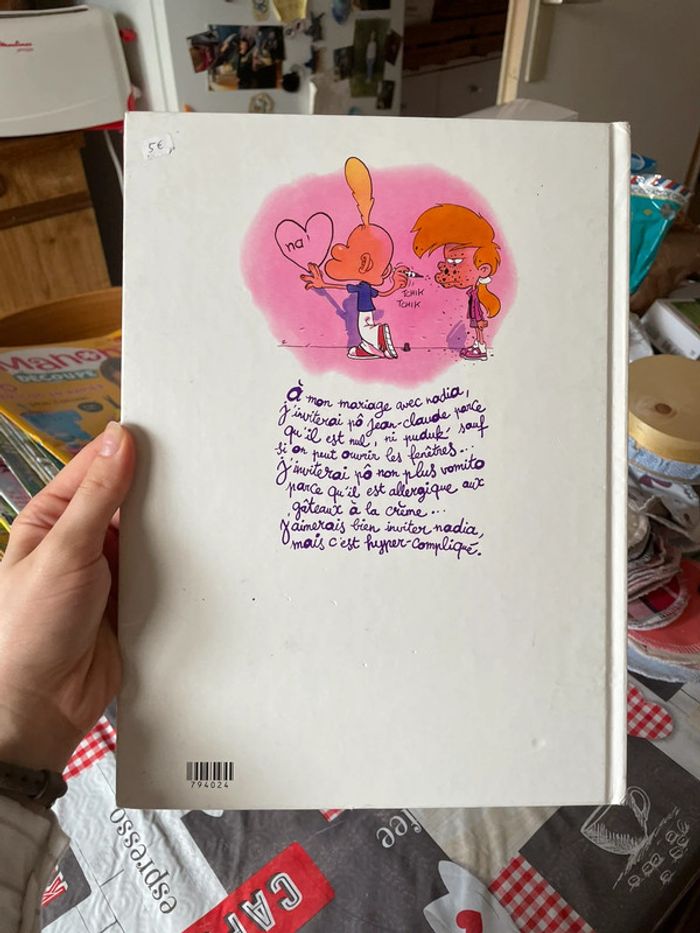 Moulinex
5€
na
TCHIK
TCHIK
à mon mariage avec nadia,
j'inviterai pô jean-claude parce
qu'il est nul, ni puduk' sauf
si on peut ouvrir les fenêtres...
j'inviterai pô non plus vomito
parce qu'il est allergique aux
gâteaux à la crème...
j'aimerais bien inviter nadia,
mais c'est hyper-compliqué.
Manon
DÉCOUPE
794024
espresso
CAF